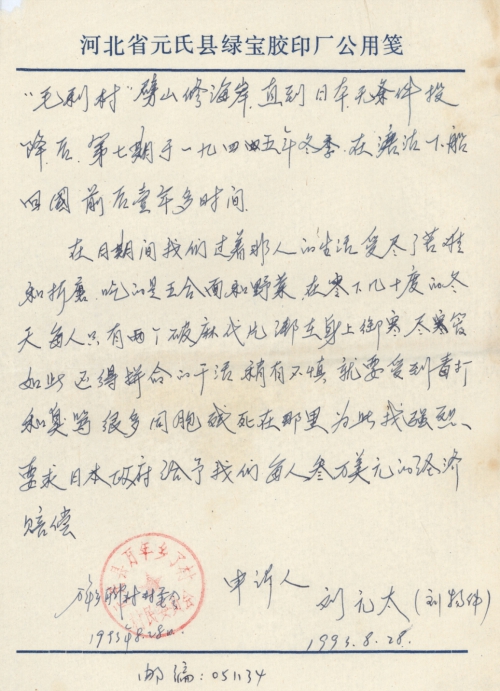 河北省元氏县绿宝胶印厂公用笺
"毛利村"劈山修海岸.直到日本无条件投
降后.第七期于一九四五年冬季.在溏沽下船
回國前后壹年多时间.
在日期间我们过着非人的生活受尽了苦难
和折磨.吃的是五合面和野菜.在零下几十度的冬
天每人只有两个破麻代片绑在身上御寒尽管
如此还得拼命的干活稍有不慎就要受到毒打
和臭骂很多同胞死在那里为此我强烈
要求日本政府给予我们每人叁万美元的经济
赔偿
申请人
刘元太(刘
8.28
1993.8.28.
邮编:051134